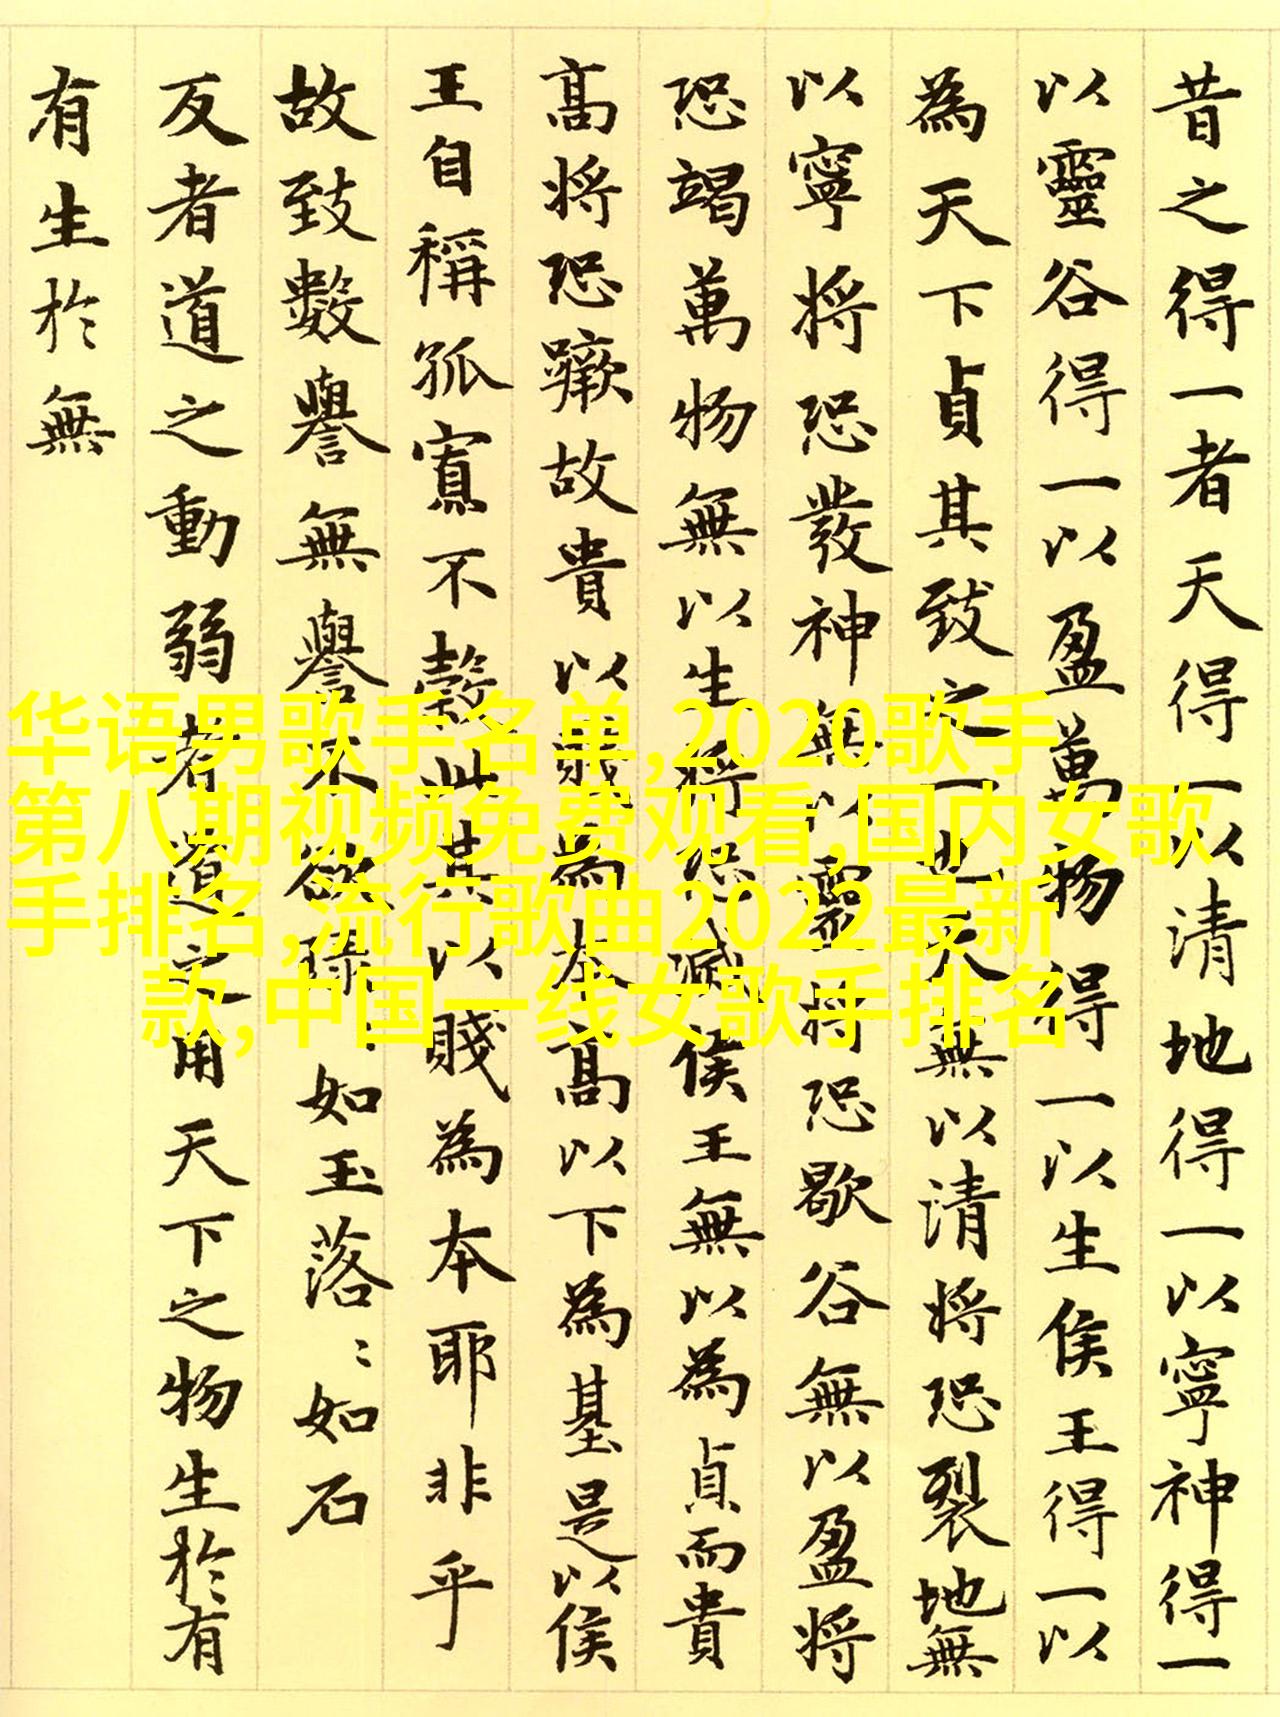 昔之得一者天得一以清地得一以寧神得一
以靈谷得一以盈萬物得一以生侯王得一以
為天下貞其致之一也天無以清將恐裂地無
以寧將恐發神無以靈將恐歇谷無以盈將
恐竭萬物無以生將恐滅侯王無以為貞而貴
高將恐蹶故貴以賤為本高以下為基是以侯
王自稱孤寡不穀此其以賤為本耶非乎
故致數譽無譽不欲琭〻如玉落〻如石
反者道之動弱者道之用天下之物生於有
有生於無
华语男歌手名单,2020歌手
第八期视频免费观看,国内女歌
手排名,流行歌曲2022最新
款,中国一线女歌手排名